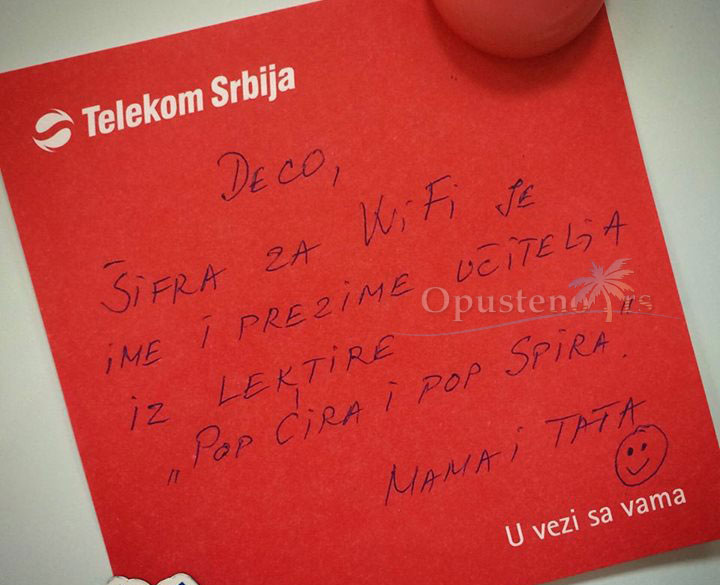 Telekom Srbija
DECO,
ŠIFRA ZA WiFi JE
IME I PREZIME UČITELJA
IZ LEKTIRE
„POP ĆIRA I POP SPIRA“.
MAMA I TATA
U vezi sa vama
Opusteno.rs